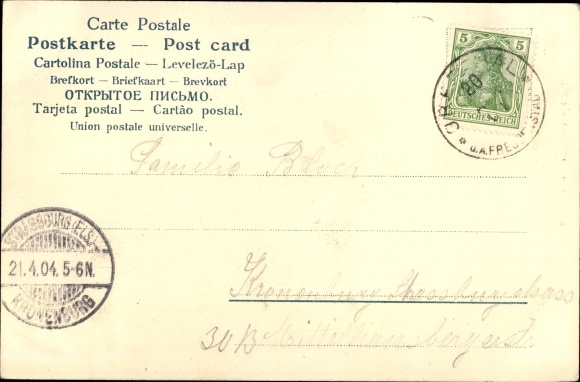 Carte Postale
Postkarte — Post card
Cartolina Postale — Levelező-Lap
Brefkort — Briefkaart — Brevkort
ОТКРЫТОЕ ПИСЬМО.
Tarjeta postal — Cartão postal.
Union postale universelle.
5 5
DEUTSCHES REICH
20
U.A. FREUDENSTADT
Familie Bloch
STRASSBURG (ELS.)
21.4.04. 5-6N.
KRONENBURG
Kronenburg Strassburg
30B